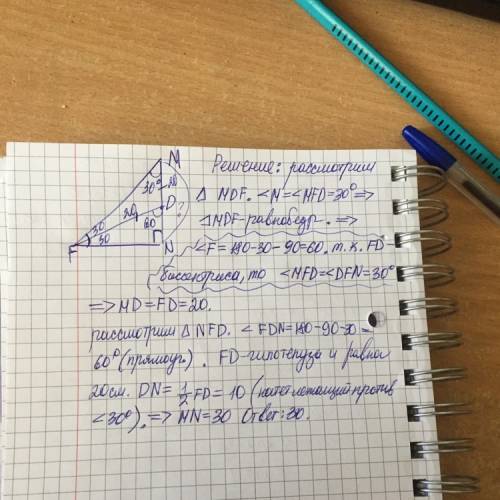 M
30° 20
D ?
20
60
30
30
F N
Решение: рассмотрим
△ MDF. <M=<MFD=30° =>
△MDF-равнобедр. =>
<F=180-30-90=60. т.к. FD
биссектриса, то <MFD=<DFN=30°
=> MD=FD=20.
рассмотрим △ NFD. < FDN=180-90-30=
60° (прямоуг.). FD-гипотенуза и равна
20см. DN= 1/2 FD = 10 (катет лежащий против
<30°). => MN=30 Ответ: 30.